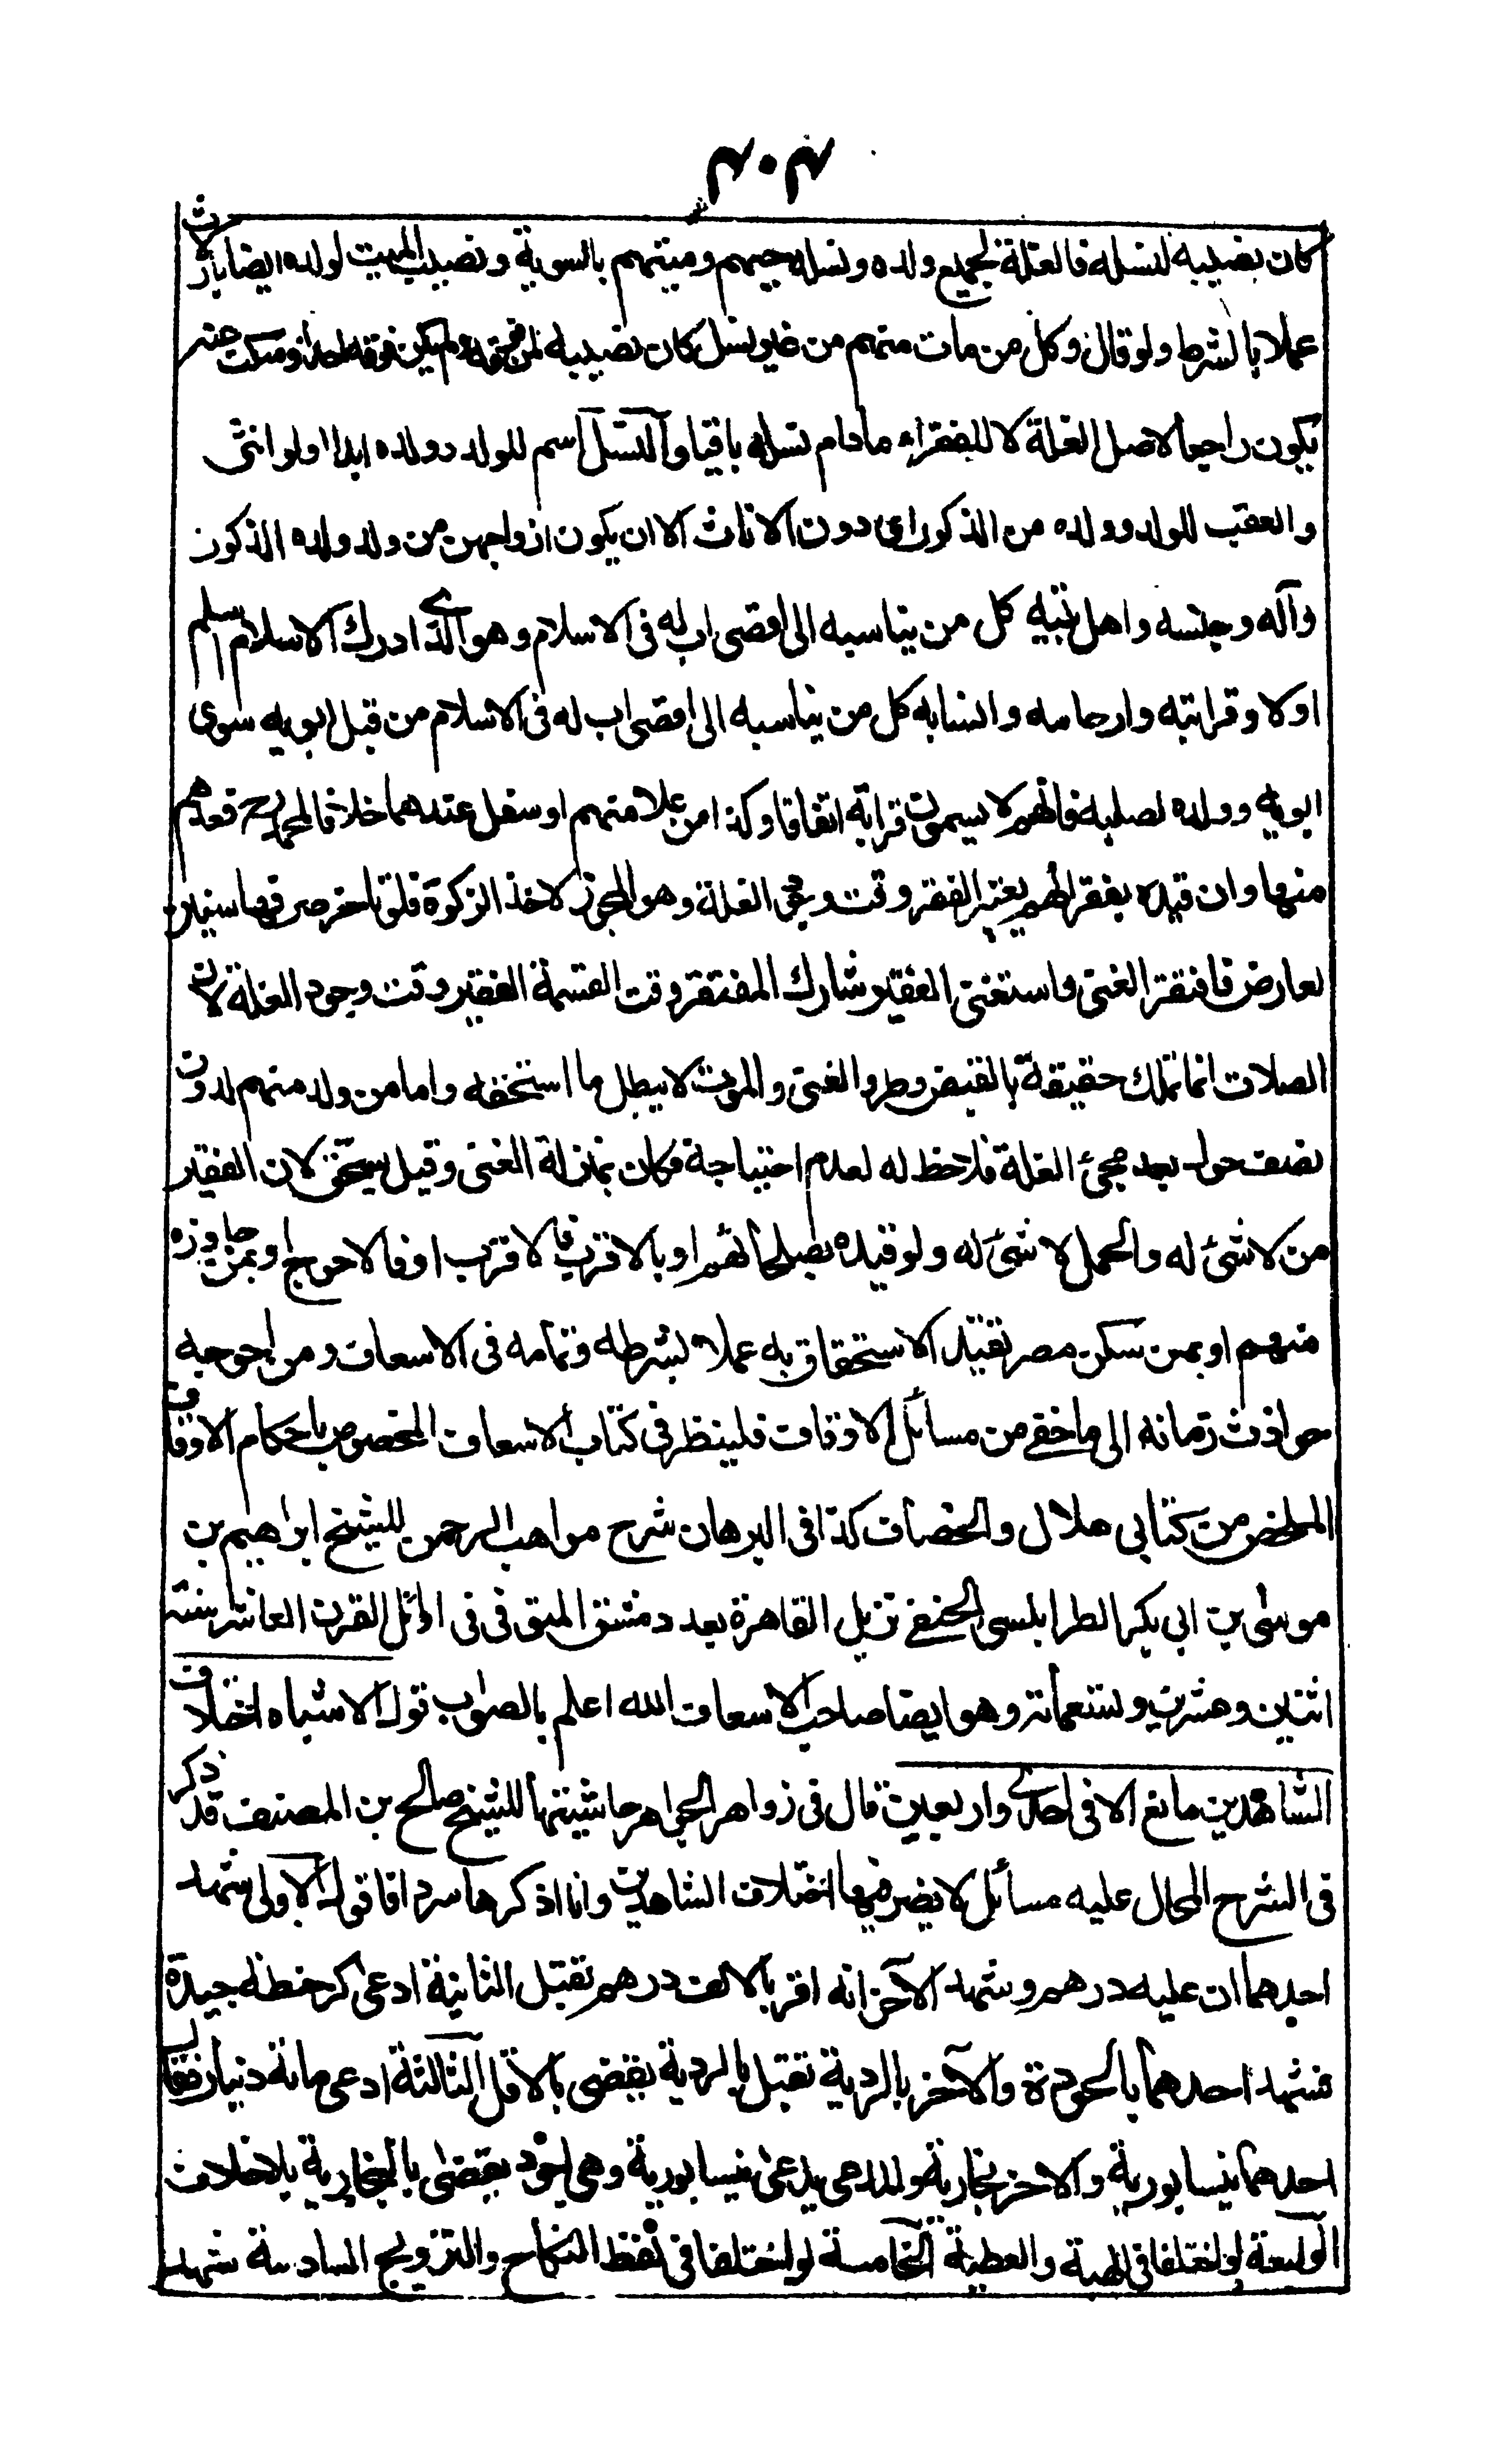 ٣٠٣
كان نصيبه لنسله فالغلة لجميع ولده ونسله حيهم وميتهم بالسوية ونصيب الميت لولده ايضا بالارث
عملا بالشرط ولو قال وكل من مات منهم من غير نسل كان نصيبه لمن فوقه ولم يكن فوقه احد او سكت عنه
يكون راجعا لاصل الغلة لا للفقراء مادام نسله باقيا والنسل اسم للولد وولده ابدا ولو انثى
والعقب للولد وولده من الذكور اى دون الاناث الا ان يكون ازواجهن من ولد ولده الذكور
وآله وجنسه واهل بيته كل من يناسبه الى اقصى اب له فى الاسلام وهو الذى ادرك الاسلام اسلم
اولا وقرابته وارحامه وانسابه كل من يناسبه الى اقصى اب له فى الاسلام من قبل ابويه سوى
ابويه وولده لصلبه فانهم لا يسمون قرابة اتفاقا وكذا من علا منهم او سفل عندهما خلافا لمحمد فعدهم
منها وان قيده بفقرائهم يعتبر الفقر وقت وجود الغلة وهو المجوز لاخذ الزكوة فلو تاخر صرفها سنين
لعارض فافتقر الغنى واستغنى الفقير شارك المفتقر وقت القسمة الفقير وقت وجود الغلة لان
الصلات انما تملك حقيقة بالقبض وطرو الغنى والموت لا يبطل ما استحقه واما من ولد منهم لدون
نصف حول بعد مجئ الغلة فلا حظ له لعدم احتياجه فكان بمنزلة الغنى وقيل يستحق لان الفقير
من لا شئ له والحمل لا شئ له ولو قيده بصلحائهم او بالاقرب فالاقرب او فالاحوج او بمن جاوره
منهم او بمن سكن مصر تقيد الاستحقاق به عملا بشرطه وتمامه فى الاسعاف ومن احوجه
حوادث زمانه الى ما خفى من مسائل الاوقاف فلينظر فى كتاب الاسعاف المخصوص باحكام الاوقاف
الملخص من كتابى هلال والخصاف كذا فى البرهان شرح مواهب الرحمن للشيخ ابراهيم بن
موسى بن ابى بكر الطرابلسى الحنفى نزيل القاهرة بعد دمشق المتوفى فى اوائل القرن العاشر سنة
اثنين وعشرين وتسعمائة وهو ايضا صاحب الاسعاف الله اعلم بالصواب قول الاشباه اختلاف
الشاهدين مانع الا فى احدى واربعين قال فى زواهر الجواهر حاشيتها للشيخ صالح بن المصنف قد ذكر
فى الشرح المحال عليه مسائل لا يضر فيها اختلاف الشاهدين وانا اذكرها سردا فاقول الاولى شهد
احدهما ان عليه درهم وشهد الآخر انه اقر بالالف درهم تقبل الثانية ادعى كر حنطة جيدة
فشهد احدهما بالجودة والآخر بالردية تقبل بالردية يقضى بالاقل الثالثة ادعى مائة دينار فقال
احدهما نيسابورية والاخر بخارية والمدعى يدعى نيسابورية وهى اجود يقضى بالبخارية بلا خلاف
الرابعة لو اختلفا فى الهبة والعطية الخامسة لو اختلفا فى لفظ النكاح والتزويج السادسة شهد